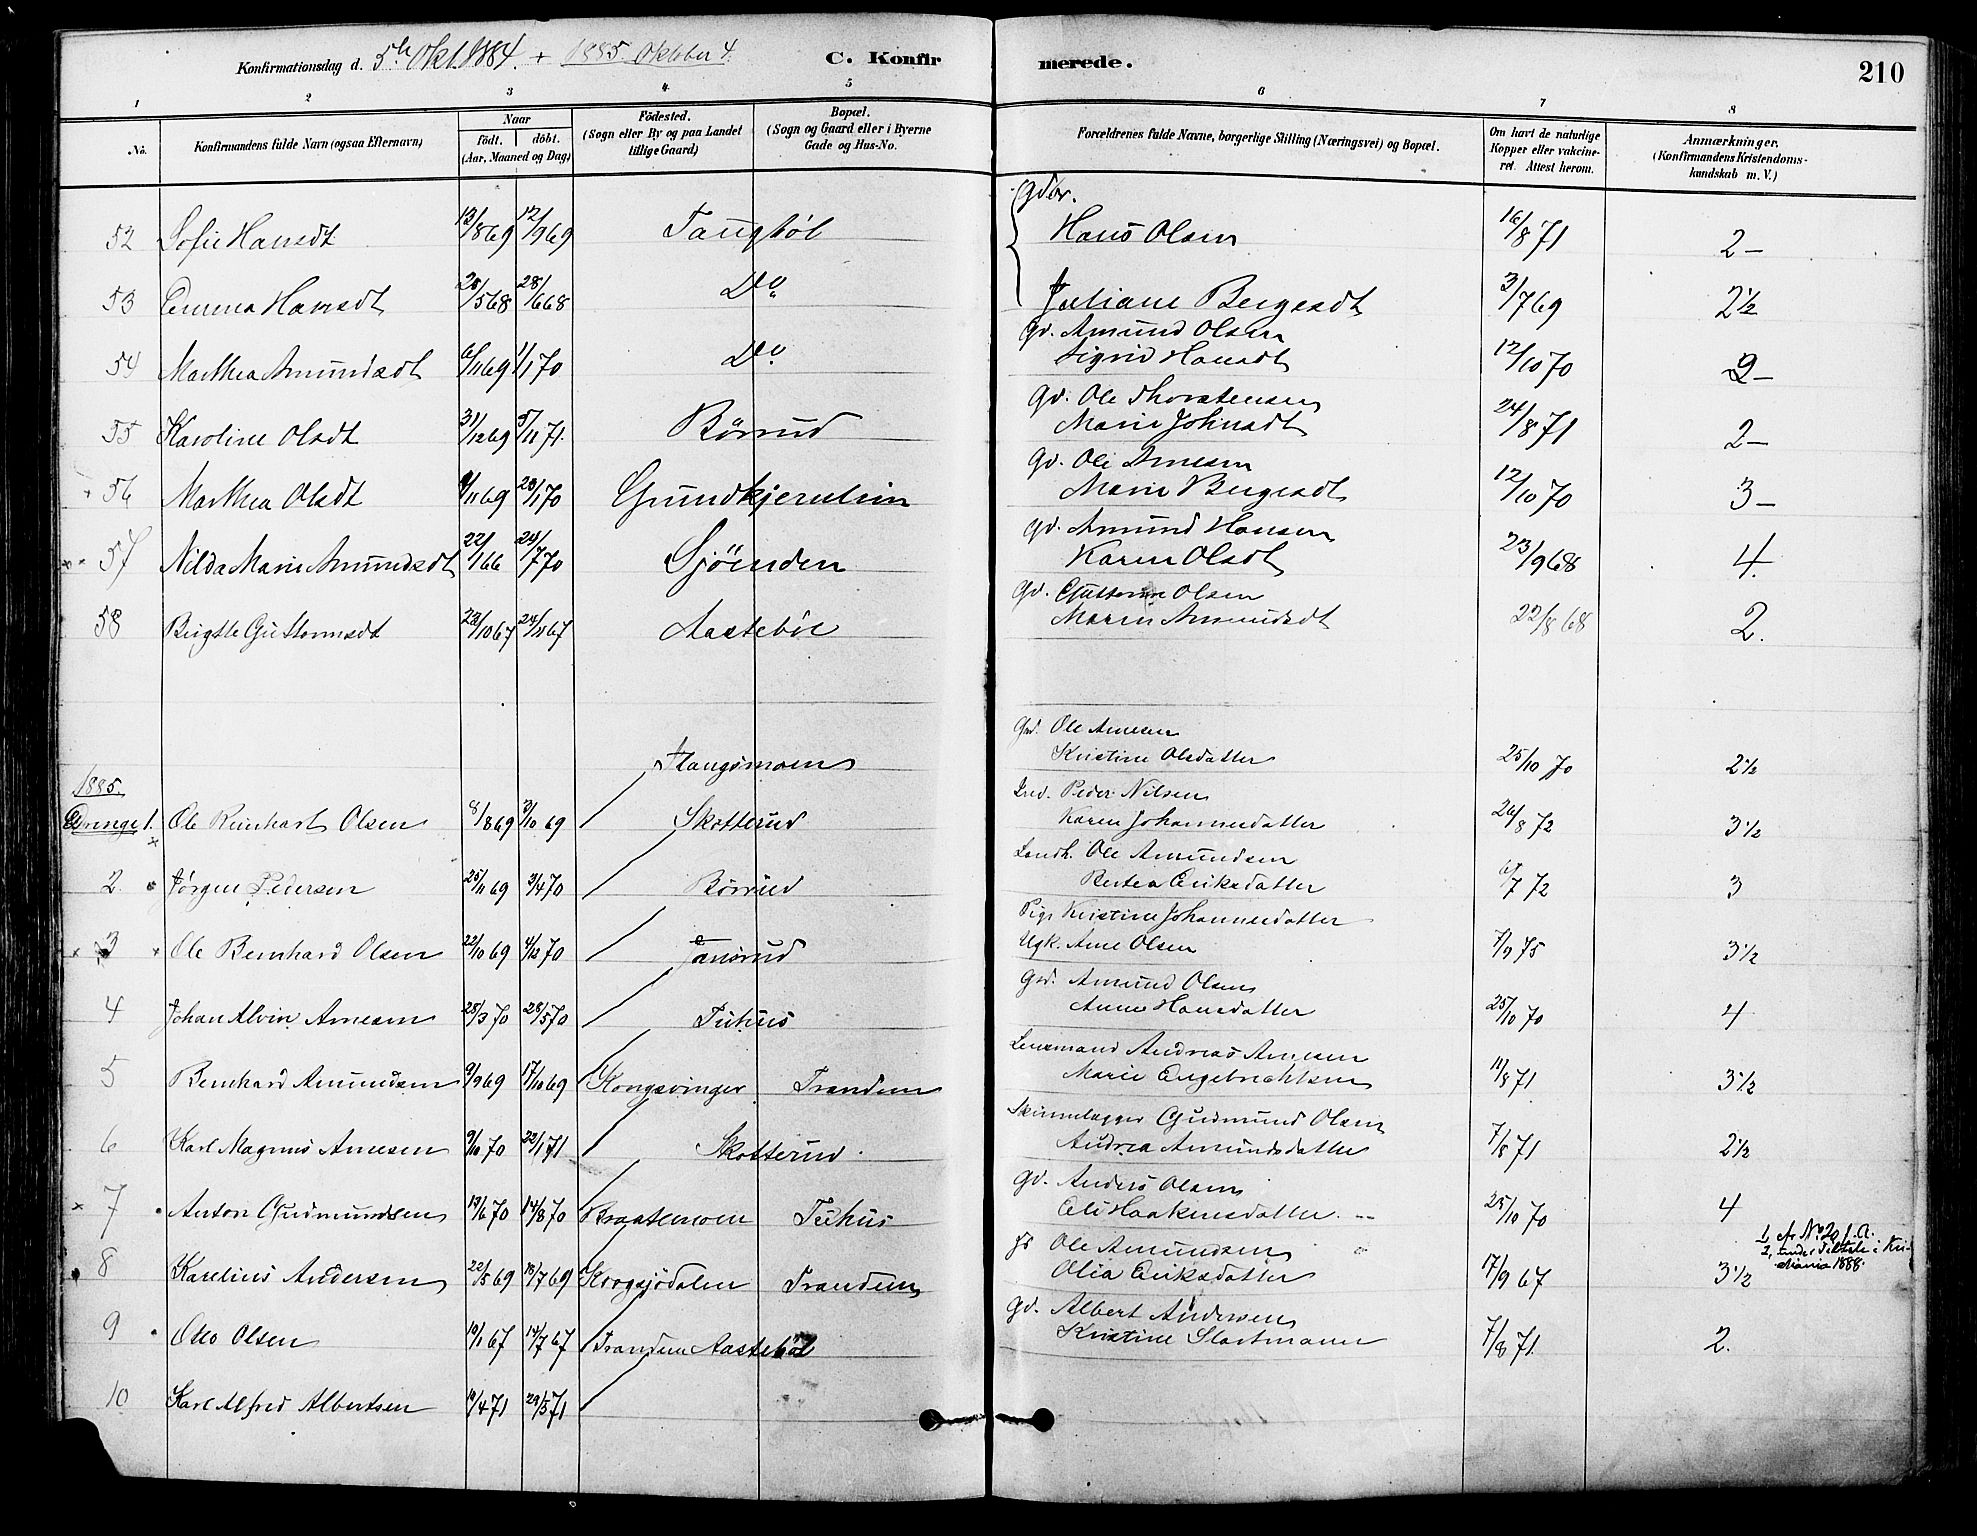 Konfirmationsdag d. 5te Okt. 1884. + 1885. Oktober 4. C. Konfirmerede. 210
1 2 3 4 5 6 7 8
No. Konfirmandens fulde Navn (ogsaa Efternavn) Naar födt. döbt. (Aar, Maaned og Dag) Födested. (Sogn eller By og paa Landet tillige Gaard) Bopæl. (Sogn og Gaard eller i Byerne Gade og Hus-No. Forældrenes fulde Navne, borgerlige Stilling (Næringsvei) og Bopæl. Om havt de naturlige Kopper eller vakcineret. Attest herom. Anmærkninger. (Konfirmandens Kristendomskundskab m. V.)
Gdbr.
52 Sofie Hansdt 13/8 69 12/9 69 Hans Olsen 16/8 71 2-
53 Emma Hansdt 28/6 68 Do Juliane Bergesdt 3/7 69 2½
Gd. Amund Olsen
54 Marthea Amundsdt 6/11 69 1/1 70 Do Sigrid Hansdt 12/10 70 2-
Gd. Ole Thorstensen
55 Karoline Olsdt 31/12 69 5/11 71. Börrud Marie Johnsdt 24/8 71 2-
Gd. Ole Arnesen
56 Marthea Olsdt 11 69 1 70 Marie Bergesdt 12/10 70 3-
Gd. Amund Hansen
57 Nilda Marie Amundsdt 22/1 66 24/7 70 Sjöenden Karen Olsdt 23/9 68 4.
Gd. Guttorm Olsen
58 Birgitte Guttormsdt 10 67 24/11 67 Aasteböl Maren Amundsdt 22/8 68 2.
Gd. Ole Arnesen
Haugsmoen Kristine Olsdatter 25/10 70 2½
1885. Peder Nilsen
Drenge 1. Ole Reinhart Olsen 8/8 69 3/10 69 Skotterud Karen Johannesdatter 26/8 72 3½
Landh. Ole Amundsen
2. Jörgen Pedersen 25/11 69 3/4 70 Börrud Bertea Eriksdatter 6/7 72 3
Pige Kristine Johannesdatter
3 Ole Bernhard Olsen 22/10 69 4/12 70 Ugk. Arne Olsen 7/9 75 3½
Gd. Amund Olsen
4 Johan Alvin Arnesen 28/3 70 28/5 70 Tuhus Anne Hansdatter 25/10 70 4
Lensmand Andreas Arnesen
5 Bernhard Amundsen 9/9 69 17/10 69 Kongsvinger Trandem Marie Engebrechtsen 11/8 71 3½
Gudmund Olsen
6 Karl Magnus Arnesen 9/10 70 22/1 71 Skotterud. Andrea Amundsdatter 7/8 71 2½
Gd. Anders Olsen
7 Anton Gudmundsen 13/6 70 14/8 70 Braatemoen Tuhus Eli Haakensdatter. 25/10 70 4
Ole Amundsen 1, A No 20 f. A.
8 Karelius Andersen 22/5 69 18/7 69 Trandem Olia Eriksdatter 17/9 67 3½ 2, under Tiltale i Kristiania 1888.
Gd. Albert Andersen
9 Otto Olsen 19/1 67 14/7 67 Trandem Aasteböl Kristine Slartmann 7/8 71. 2.
10 Karl Alfred Albertsen 19/4 71 29/5 71